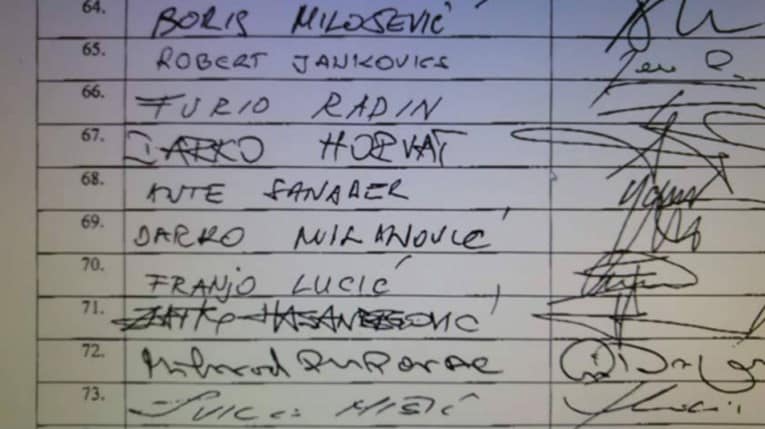 64. BORIS MILOŠEVIĆ
65. ROBERT JANKOVICS
66. FURIO RADIN
67. DARKO HORVAT
68. ANTE SANADER
69. DARKO MILANOVIĆ
70. FRANJO LUCIĆ
71. ZLATKO HASANBEGOVIĆ
72. Milorad Pupovac
73. IVICA MIŠIĆ